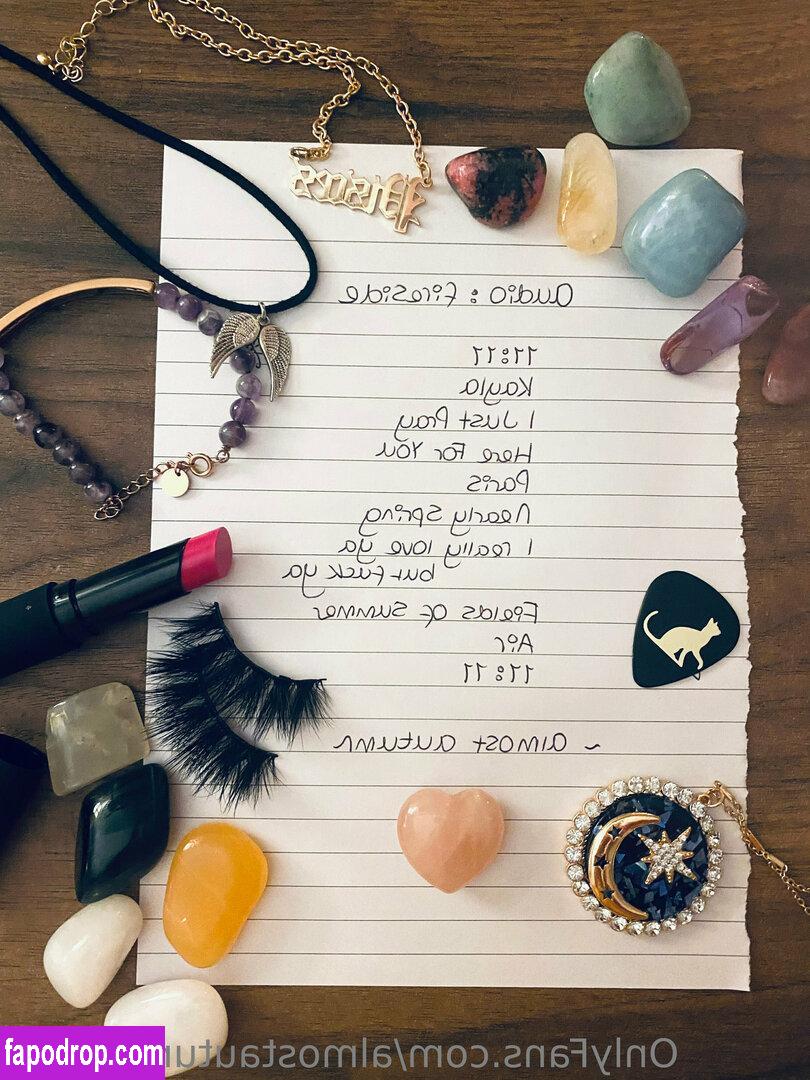 Pisces
Audio : Fireside
11:11
Kayla
I Just Pray
Here For You
Paris
Nearly Spring
I really love ya
but Fuck ya
Fields Of Summer
Air
11:11
~ almost autumn
OnlyFans.com/almostautu
fapodrop.com